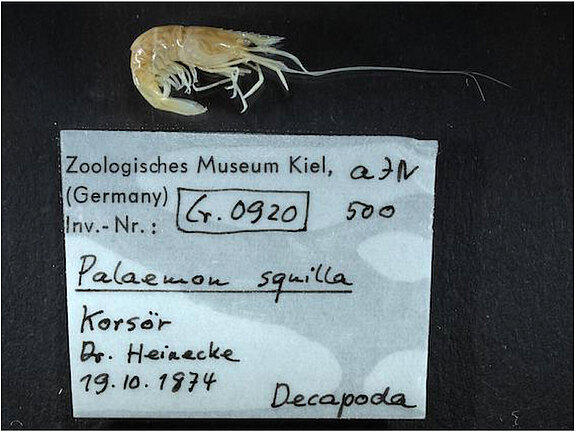 Zoologisches Museum Kiel,
(Germany)
Inv.-Nr.: Cr. 0920 500
Palaemon squilla
Korsör
Dr. Heinecke
19.10.1874
Decapoda